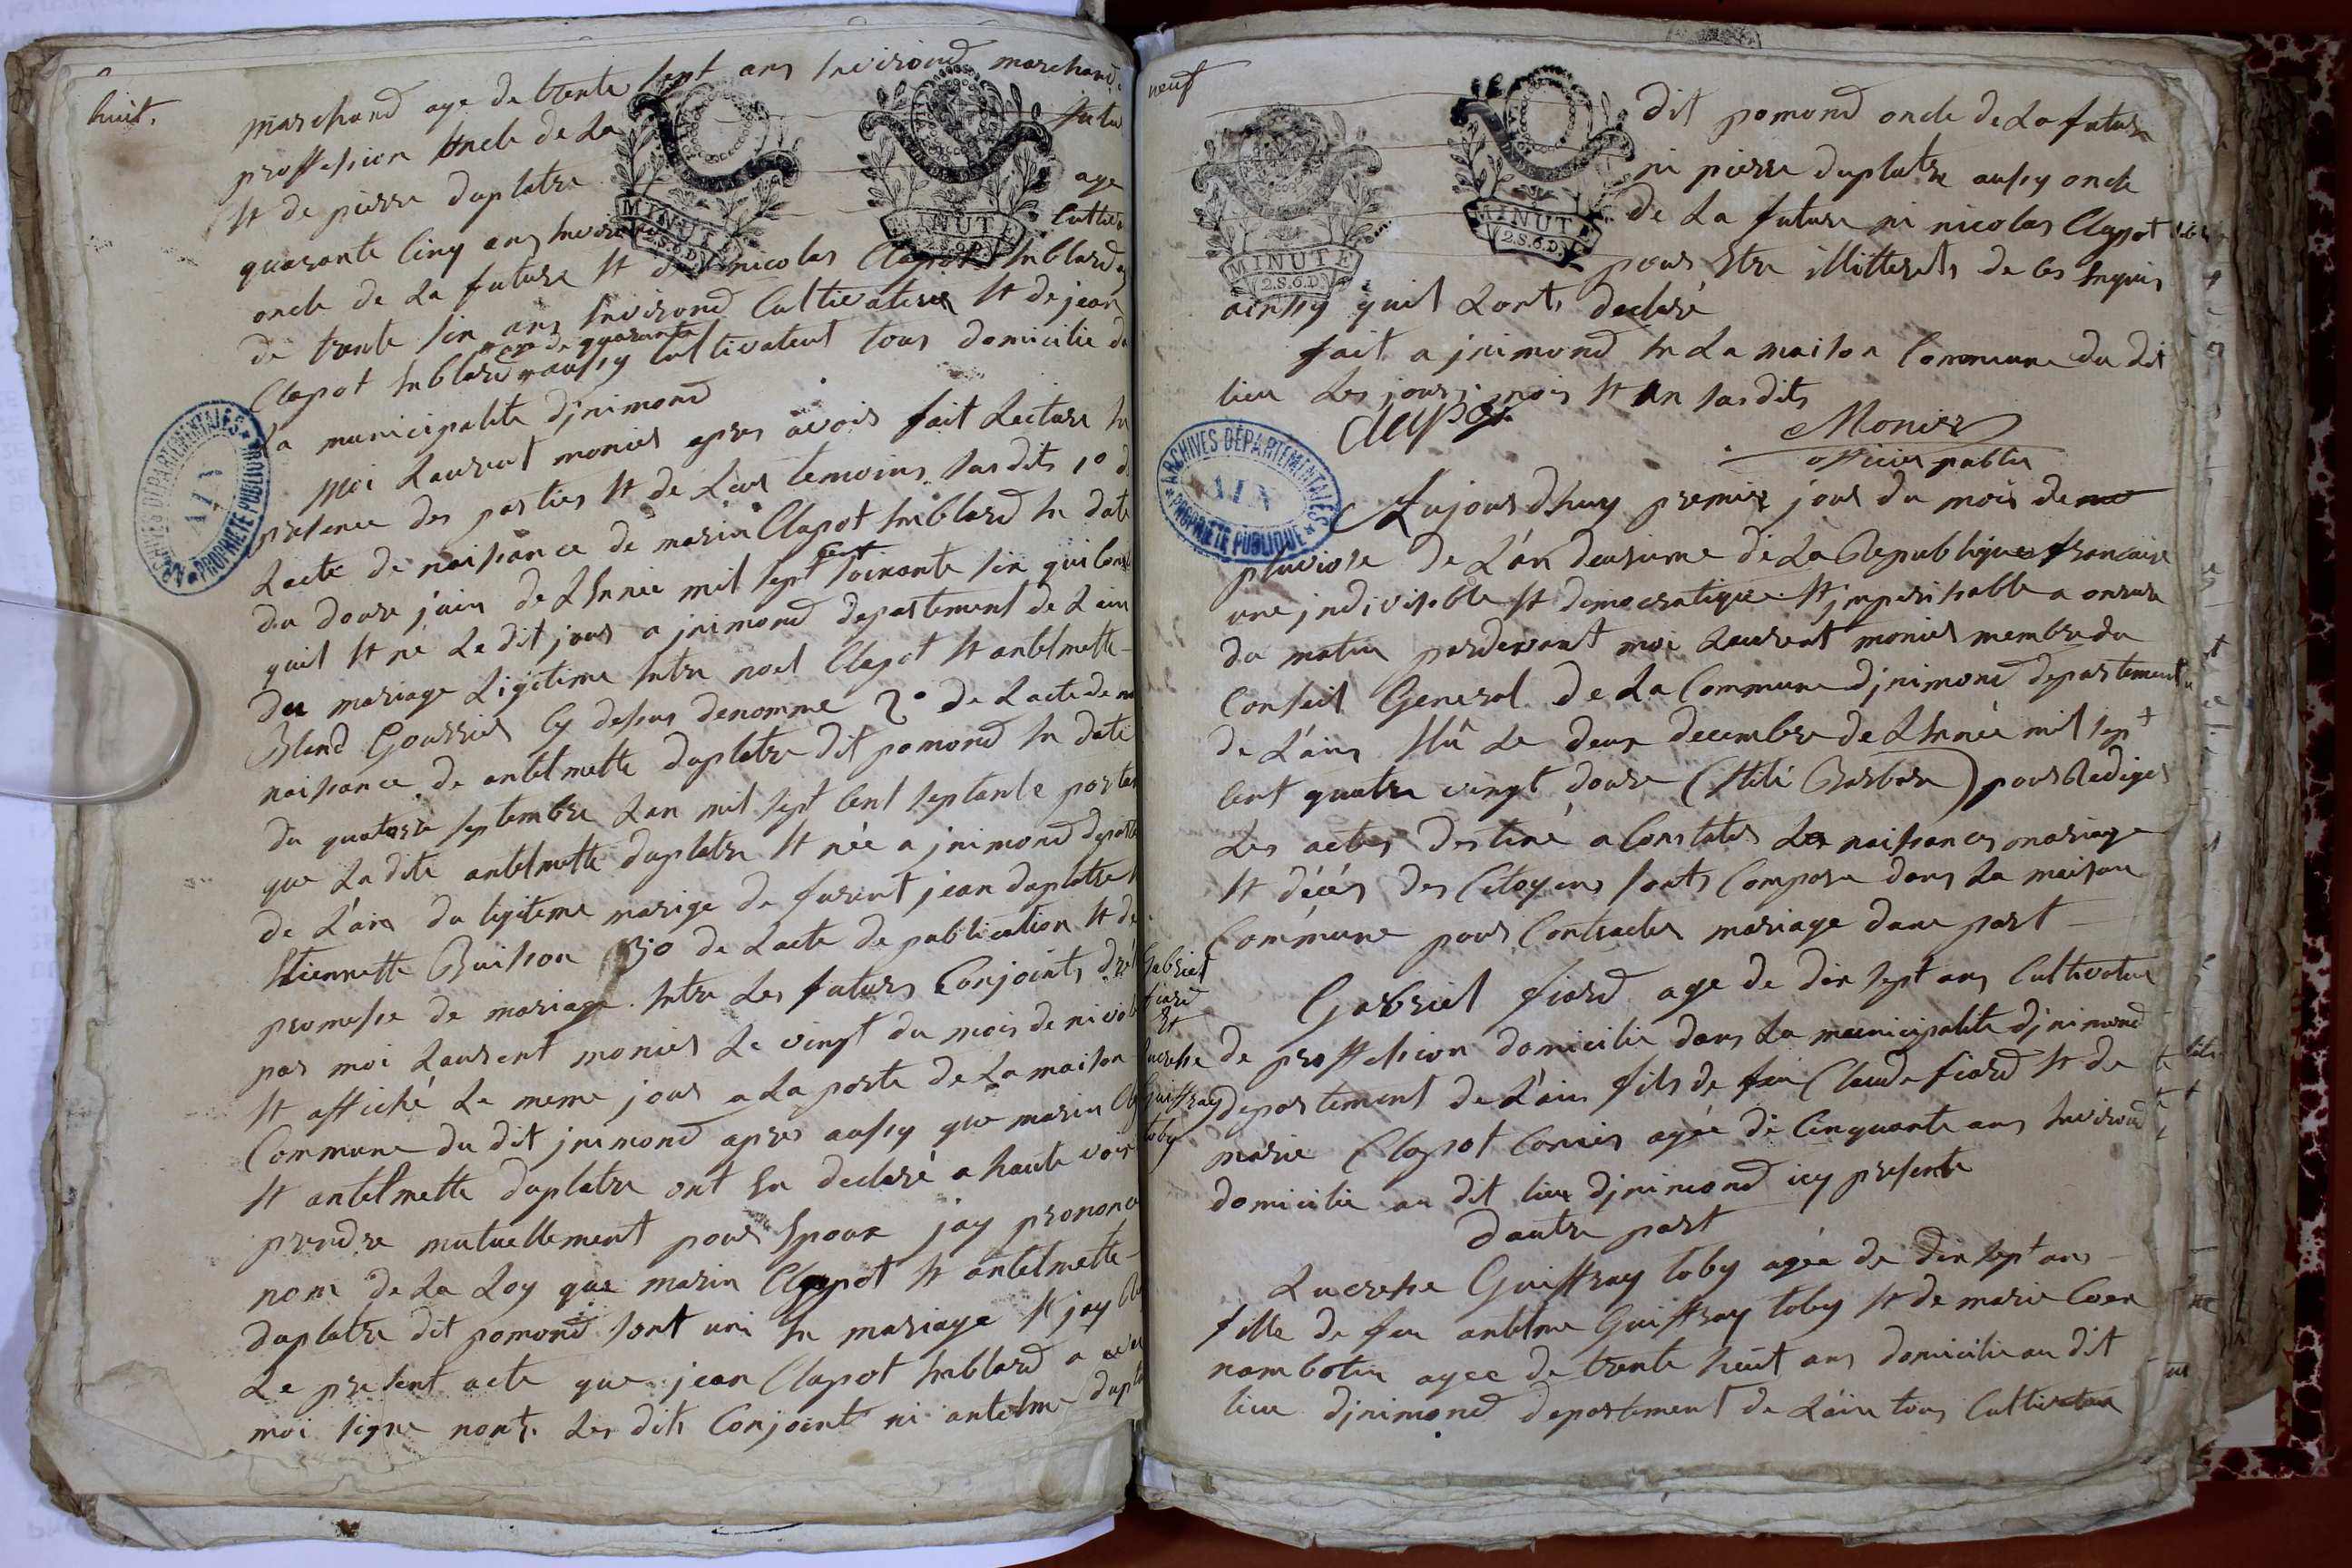 huit.
marchand age de trente sept ans Environd marchand
proffession oncle de La futu
Et de pierre duplatre age
quarante Cinq ans Environ Cultiv
oncle de La future Et de nicolas Clapot Enblard
de trente six ans Environd Cultivateur Et de jean
age de quarante
Clapot Enblard aussy Cultivateur tous domicilie d
La municipalite djnimond
Moi Laurent monier apres avoir fait Lecture En
presence des parties Et de Leur temoins susdits 1° d
Lacte de naissance de marin Clapot Enblard En date
cent
du douze juin de L'Année mil sept soixante six qui Cons
quil Et né Le dit jour a jnimond departement de Lain
du mariage Ligitime Entre noel Clapot Et antelmette
Bland Goussier Cy dessus denomme 2° de Lacte de
naissance de antelmette duplatre dit pomond En date
du quatorze septembre Lan mil sept Cent septante portan
que La dite antelmette duplatre Et née a jnimond depart
de L'ain du legitime marige de furent jean duplatre
Etiennette Buisson 3° de Lacte de publication Et de
promesse de mariage Entre Les futurs Conjoints
par moi Laurent monier Le vingt du mois de nivo
Et affiché Le meme jour a La porte de La maison
Commune du dit jnimond apres aussy que marin
Et antelmette duplatre ont En declaré a haute voix
prendre mutuellement pour Epoux jay prononc
nom de La Loy que marin Clapot Et antelmette
duplatre dit pomond sont uni En mariage Et jay
Le present acte que jean Clapot Enblard a avec
moi signe nont Les dits Conjoint ni antelme dupl
MINUTE
2.S.6.D.
MINUTE
2.S.6.D.
ARCHIVES DÉPARTEMENTALES
AIN
PROPRIÉTÉ PUBLIQUE
neuf
MINUTE
2.S.6.D.
MINUTE
2.S.6.D.
dit pomond oncle de La future
ni pierre duplatre aussy oncle
de La future ni nicolas Clapot
pour Etre illitterets de ces Enquis
ainssy quil Lonts declaré
fait a jnimond En La maison Commune du dit
lieu Les jours mois Et An susdits
Clapot
Monier
officier public
ARCHIVES DÉPARTEMENTALES
AIN
PROPRIÉTÉ PUBLIQUE
Aujourdhuy premier jour du mois de
pluviose de L'an deuxieme de La Republique francaise
une jndivisible Et democratique Et jmperissable a onzure
du matin pardevant moi Laurent monier membre du
Conseil General de La Commune djnimond departement
de L'ain Elû Le deux decembre de L'Année mil sept
Cent quatre vingt douze (Stile Barbare) pour Rediger
Les actes destiné a Constater Les naissances mariage
Et décés des Citoyens sonts Compose dans La maison
Commune pour Contracter mariage dune part
Gabriel
fiard
Et
Lucresse
Guiffray
toby
Gabriel fiard age de dix sept ans Cultivateur
de proffession domicilie dans La municipalite djnimond
departement de L'ain fils de feu Claude fiard Et de
marie Clapot Cornier agée de Cinquante ans Environd
domicilie au dit lieu djnimond icy presente
dautre part
Lucresse Guiffray toby agée de dix sept ans
fille de feu antelme Guiffray toby Et de marie Coen
nambotin agee de trente huit ans domicilie au dit
lieu djnimond departement de L'ain tous Cultivateur